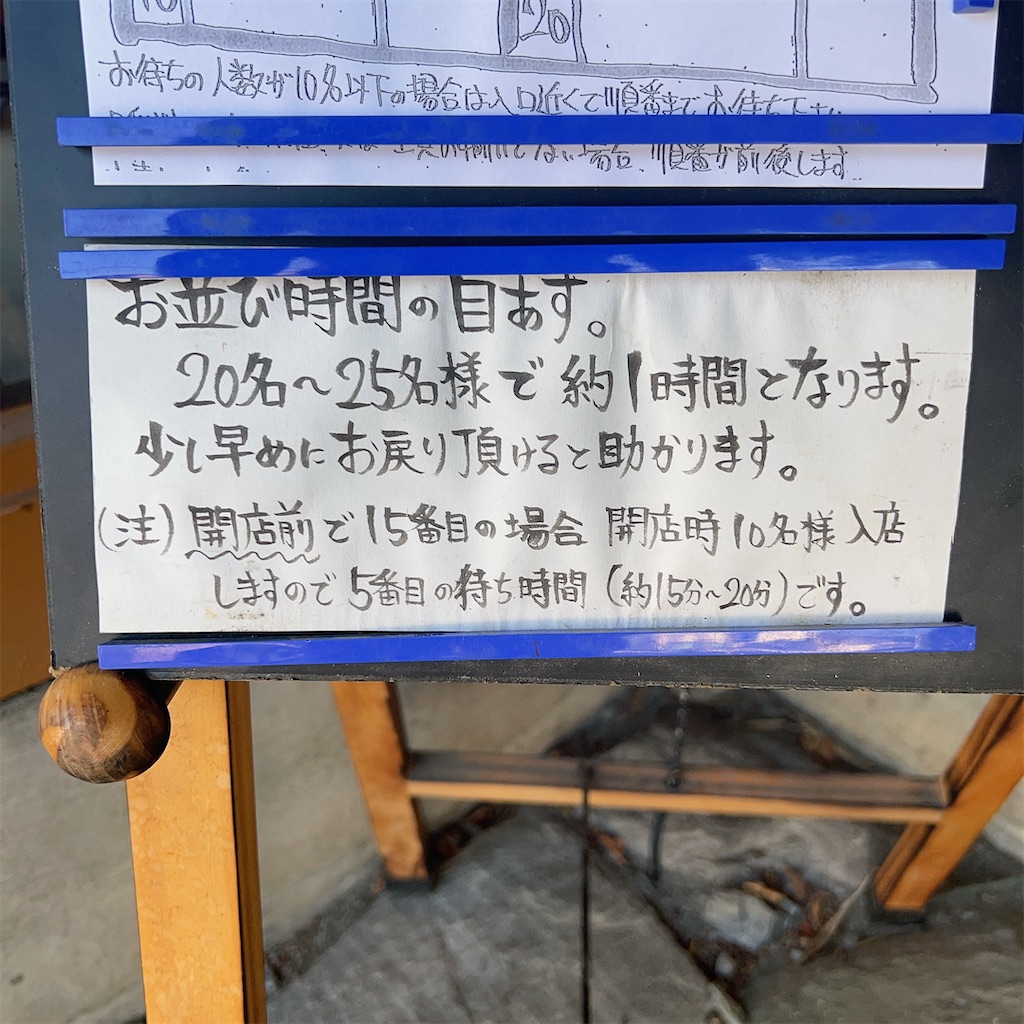 20
お待ちの人数が10名以下の場合は入口近くで順番までお待ち下さい
ない場合、順番が前後します
お並び時間の目あす。
20名〜25名様で約1時間となります。
少し早めにお戻り頂けると助かります。
(注)開店前で15番目の場合 開店時10名様入店
しますので5番目の待ち時間(約15分〜20分)です。